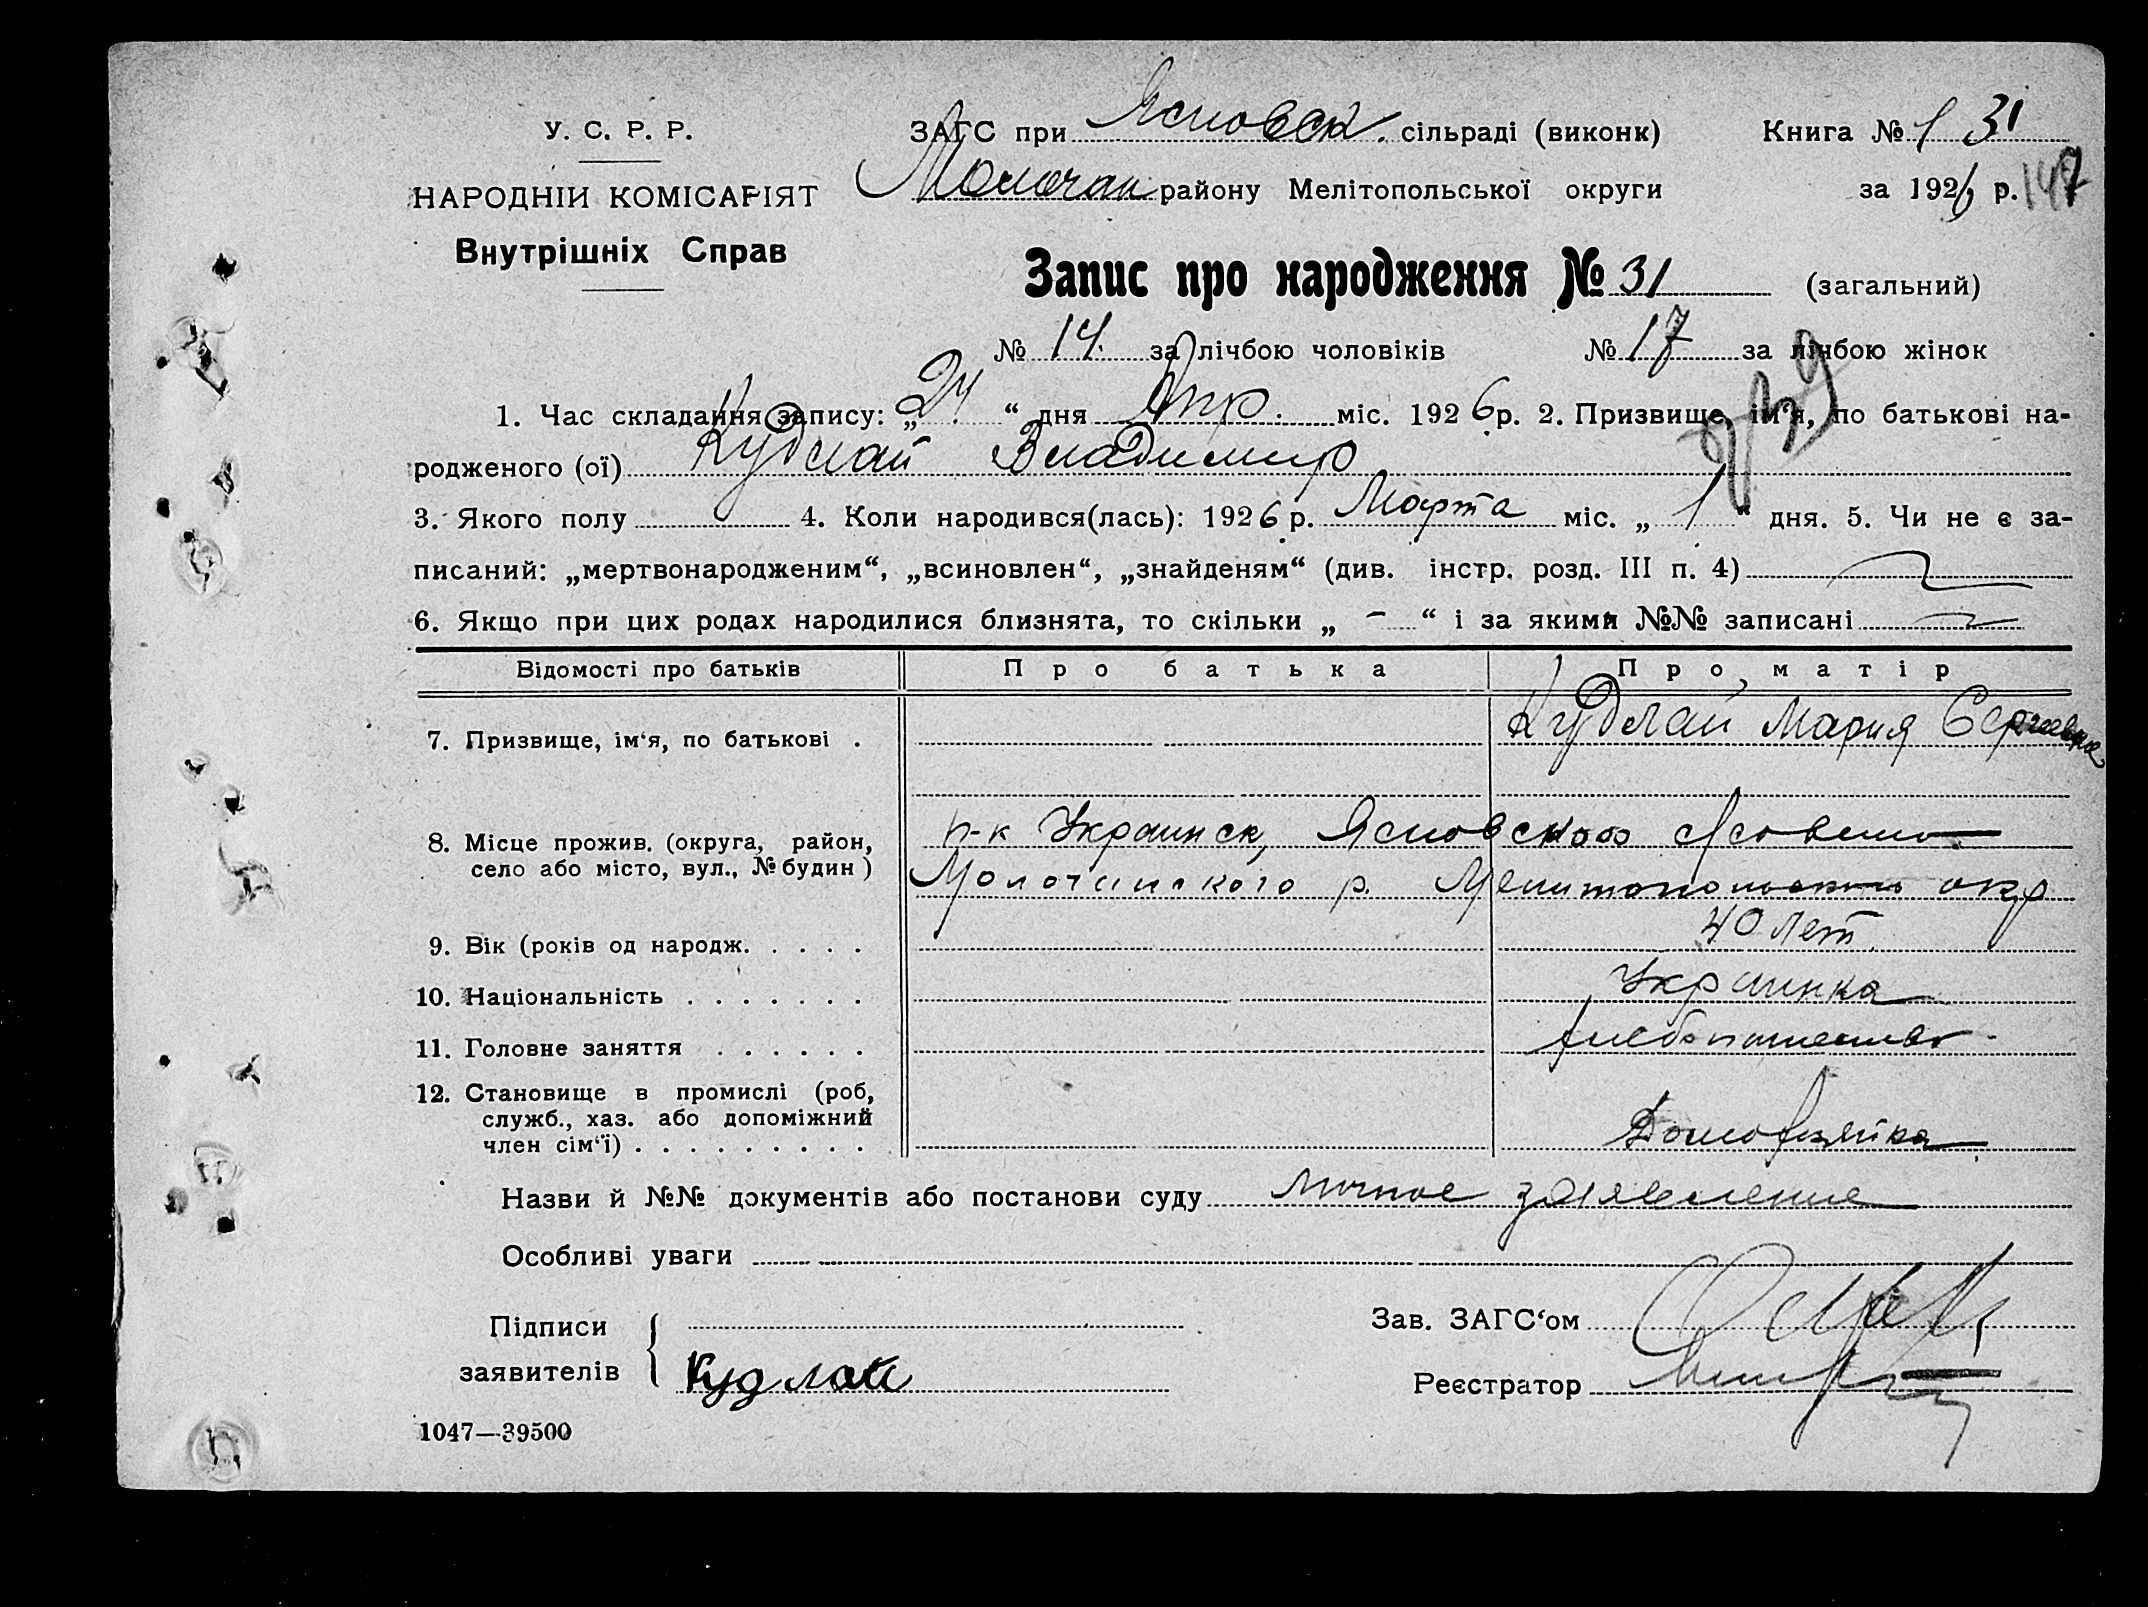 У. С. Р. Р.
НАРОДНІЙ КОМІСАРІЯТ
Внутрішніх Справ
ЗАГС при Ясновск. сільраді (виконк) Книга № 1 31
Молочан району Мелітопольської округи за 1926 р. 147
Запис про народження № 31 (загальний)
№ 14. за лічбою чоловіків № 17 за лічбою жінок
1. Час складання запису: „24“ дня Апр. міс. 1926 р. 2. Призвище, ім‘я, по батькові на-
родженого (ої) Кудлай Владимир
3. Якого полу 4. Коли народився(лась): 1926 р. Марта міс. „1“ дня. 5. Чи не є за-
писаний: „мертвонародженим“, „всиновлен“, „знайденям“ (див. інстр. розд. III п. 4)
6. Якщо при цих родах народилися близнята, то скільки „ - “ і за якими №№ записані
Відомості про батьків Про батька Про матір
7. Призвище, ім‘я, по батькові . Кудлай Мария Сергеевна
8. Місце прожив. (округа, район, село або місто, вул., № будин) п-к Украинск, Ясновского
Молочанского р. Мелитопольск окр
9. Вік (років од народж. . . . . 40 лет
10. Національність . . . . . . . Украинка
11. Головне заняття . . . . . . хлебопашество
12. Становище в промислі (роб,
служб., хаз. або допоміжний
член сім‘ї) . . . . . . . . . Домохозяйка
Назви й №№ документів або постанови суду личное заявление
Особливі уваги
Підписи
заявителів Кудлай
Зав. ЗАГС‘ом
Реєстратор
1047—39500